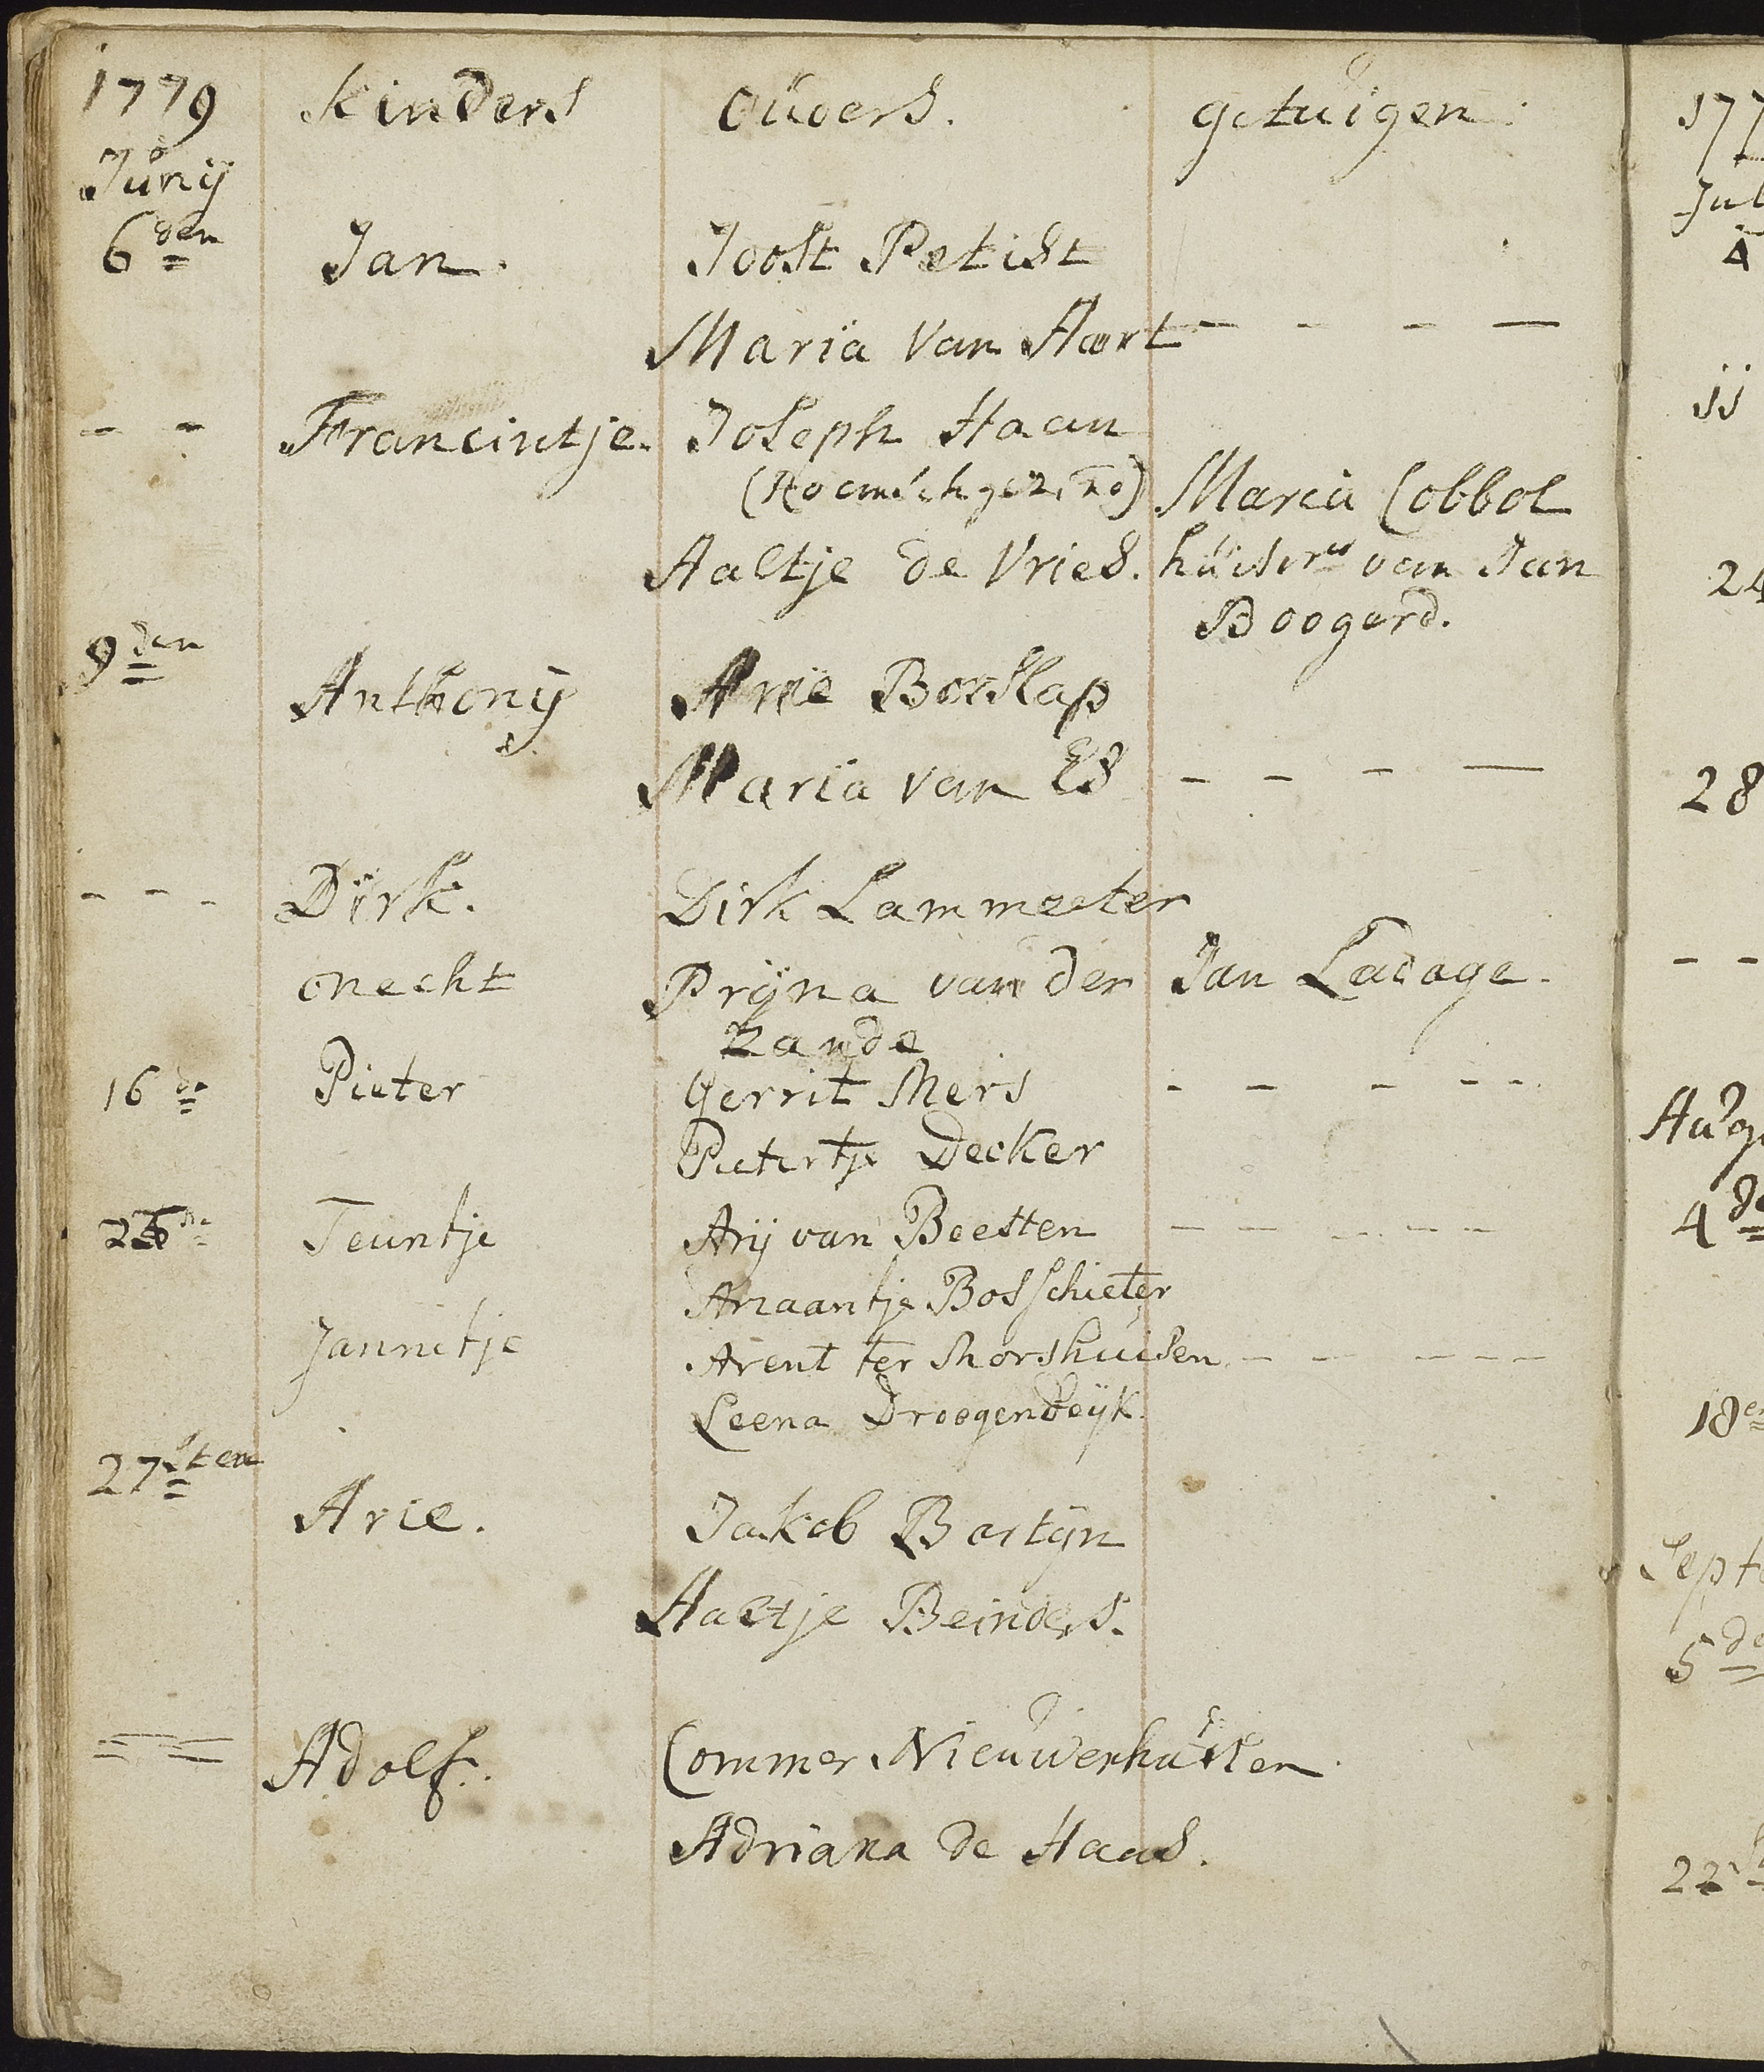 1779 Kinders Ouders. getuigen.
Junij
6den Jan. Joost Petist
Maria van Aart - - - -
- - Francintje. Joseph Haan
(Roomsch gezind) Maria Cobbol
Aaltje de Vries. huisvrw van Jan
Boogerd.
9den
Anthonij Arie Borslap
Maria van Es - - - -
- - - Dirk. Dirk Lammeeter
onecht Prijna van der Jan Ladage.
zande
16de Pieter Gerrit Mers - - - - -
Pietertje Decker
Teuntje Arij van Beesten - - - - -
Ariaantje Bosschieter
Jannetje Arent ter Morshuisen - - - - -
Leena Droogendijk
27sten
Arie. Jakob Bartijn
Aaltje Beinders.
Adolf. Commer Nieuwenhuisen
Adriana de Haas.
177
Jul
4
11
24
28
- -
Aug
4de
18e
Septe
5de
22